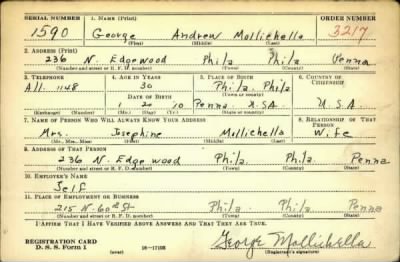 SERIAL NUMBER 1. NAME (Print) ORDER NUMBER
1590 George Andrew Mollichella 3217
(First) (Middle) (Last)
2. ADDRESS (Print)
236 N. Edgewood Phila Phila Penna
(Number and street or R. F. D. number) (Town) (County) (State)
3. TELEPHONE 4. AGE IN YEARS 5. PLACE OF BIRTH 6. COUNTRY OF CITIZENSHIP
All. 1148 30 Phila. Phila
DATE OF BIRTH (Town or county)
1 20 10 Penna. U.S.A. U.S.A.
(Exchange) (Number) (Mo.) (Day) (Yr.) (State or country)
7. NAME OF PERSON WHO WILL ALWAYS KNOW YOUR ADDRESS 8. RELATIONSHIP OF THAT PERSON
Mrs. Josephine Mollichella Wife
(Mr., Mrs., Miss) (First) (Middle) (Last)
9. ADDRESS OF THAT PERSON
236 N. Edgewood Phila. Phila. Penna
(Number and street or R. F. D. number) (Town) (County) (State)
10. EMPLOYER'S NAME
Self
11. PLACE OF EMPLOYMENT OR BUSINESS
215 N. 60th St Phila Phila Penna
(Number and street or R. F. D. number) (Town) (County) (State)
I AFFIRM THAT I HAVE VERIFIED ABOVE ANSWERS AND THAT THEY ARE TRUE.
REGISTRATION CARD
D. S. S. Form 1 (over) 16-17105 George Mollichella
(Registrant's signature)